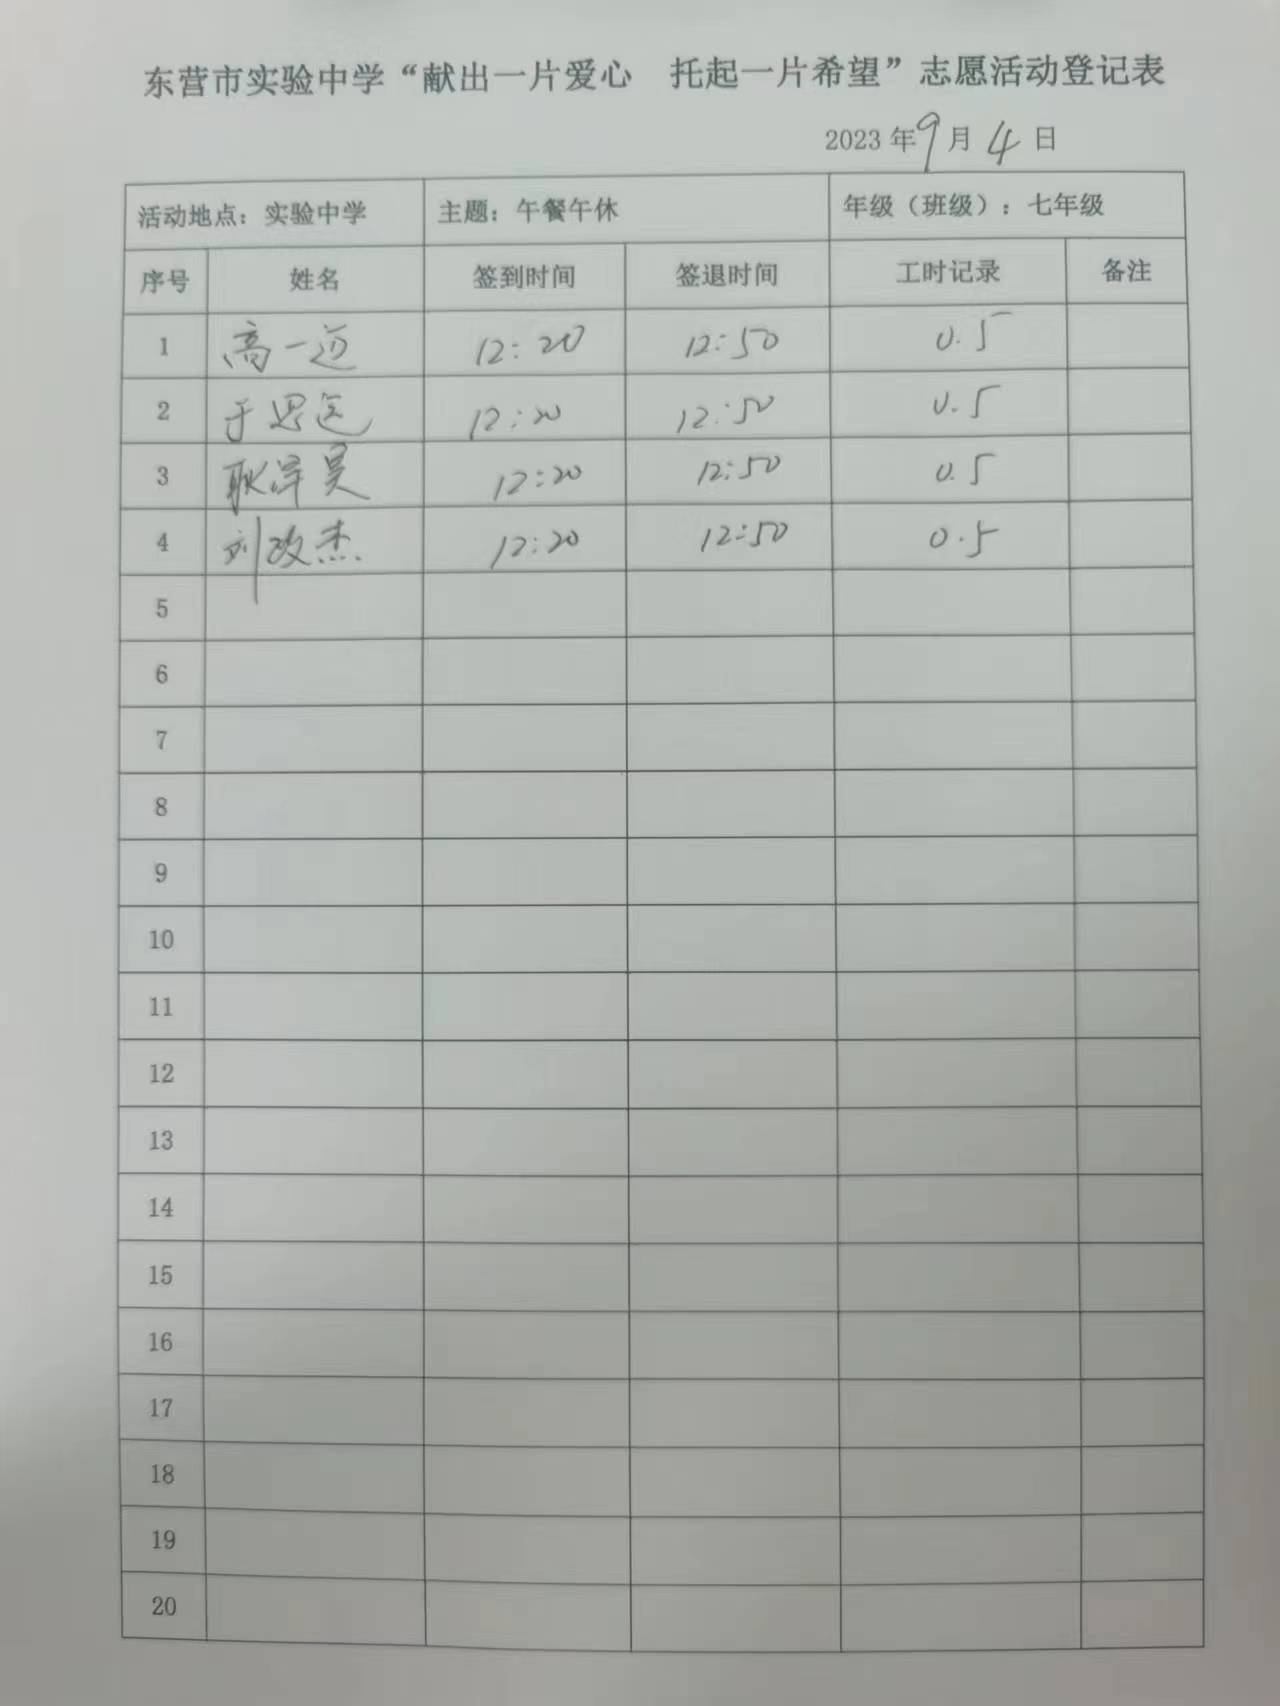 东营市实验中学“献出一片爱心 托起一片希望”志愿活动登记表
2023年9月4日
活动地点：实验中学 主题：午餐午休 年级（班级）：七年级
序号 姓名 签到时间 签退时间 工时记录 备注
1 高一迈 12:20 12:50 0.5
2 于思 12:20 12:50 0.5
3 耿泽昊 12:20 12:50 0.5
4 刘改杰 12:20 12:50 0.5
5
6
7
8
9
10
11
12
13
14
15
16
17
18
19
20